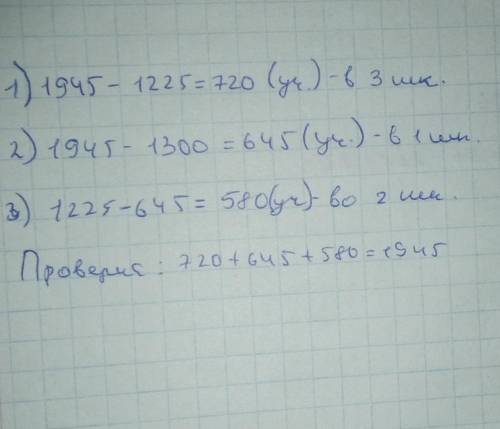 1) 1945 - 1225 = 720 (уч.) - в 3 шк.
2) 1945 - 1300 = 645 (уч.) - в 1 шк.
3) 1225 - 645 = 580 (уч) - во 2 шк.
Проверка : 720 + 645 + 580 = 1945